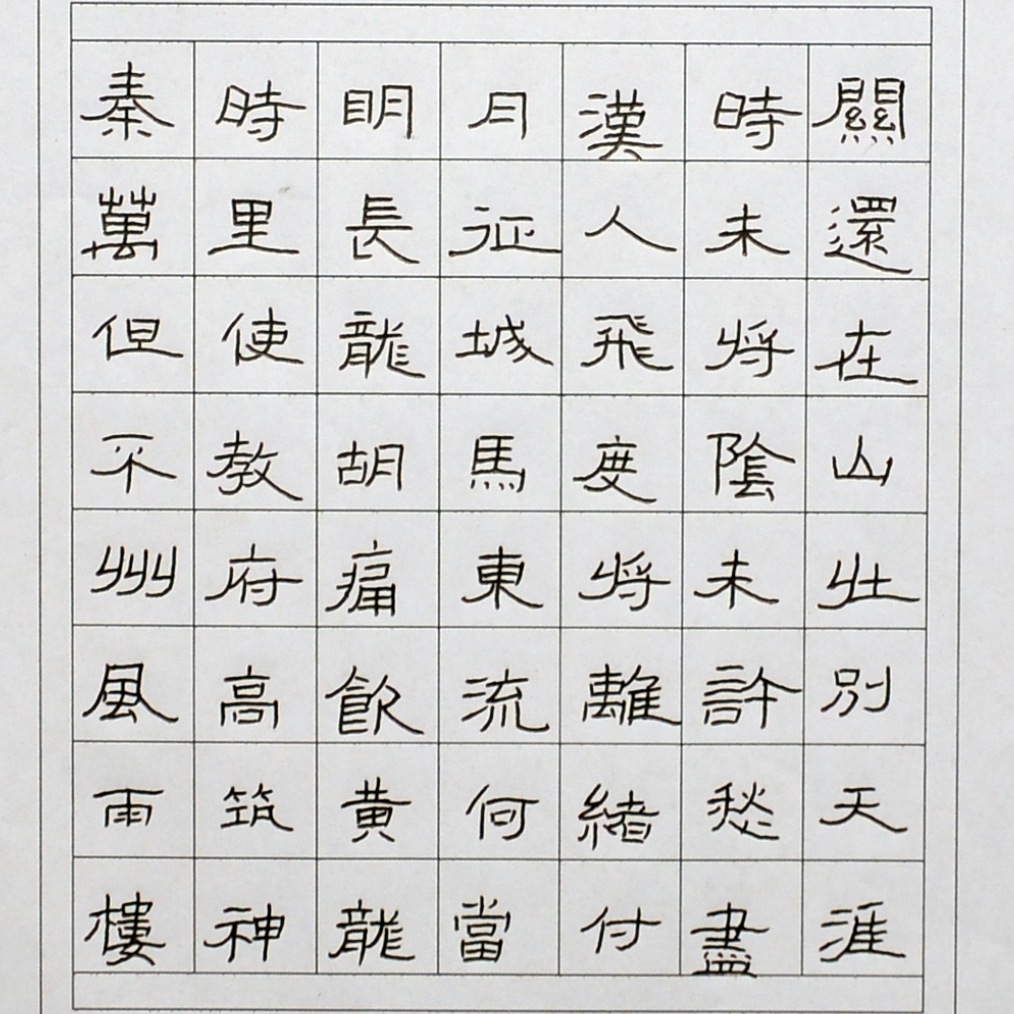 秦時明月漢時關
萬里長征人未還
但使龍城飛將在
不教胡馬度陰山
州府痛東將未壯
風高飲流離許別
雨筑黄何緒愁天
樓神龍當付盡涯